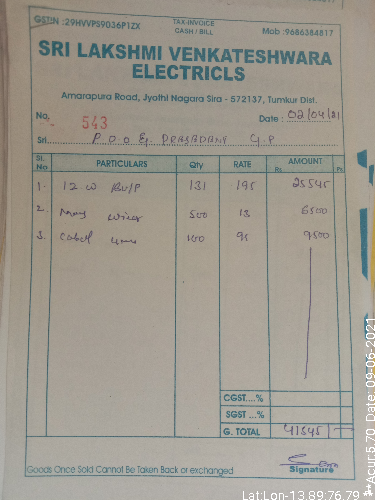 GSTIN :29HVVPS9036P1ZX
TAX-INVOICE
CASH / BILL
Mob :9686384817
SRI LAKSHMI VENKATESHWARA
ELECTRICLS
Amarapura Road, Jyothi Nagara Sira - 572137, Tumkur Dist.
No. 543
Date : 02/04/21
Sri P.D.O G.P
Sl. No PARTICULARS Qty RATE AMOUNT
Rs Ps
1. 12 W 131 195 25545
2. 500 13 6500
3. 100 95 9500
CGST....%
SGST ...%
G. TOTAL 41545/-
Signature
Goods Once Sold Cannot Be Taken Back or exchanged
Lat:Lon-13.89:76.79
**Acur:5.70 Date: 09-06-2021